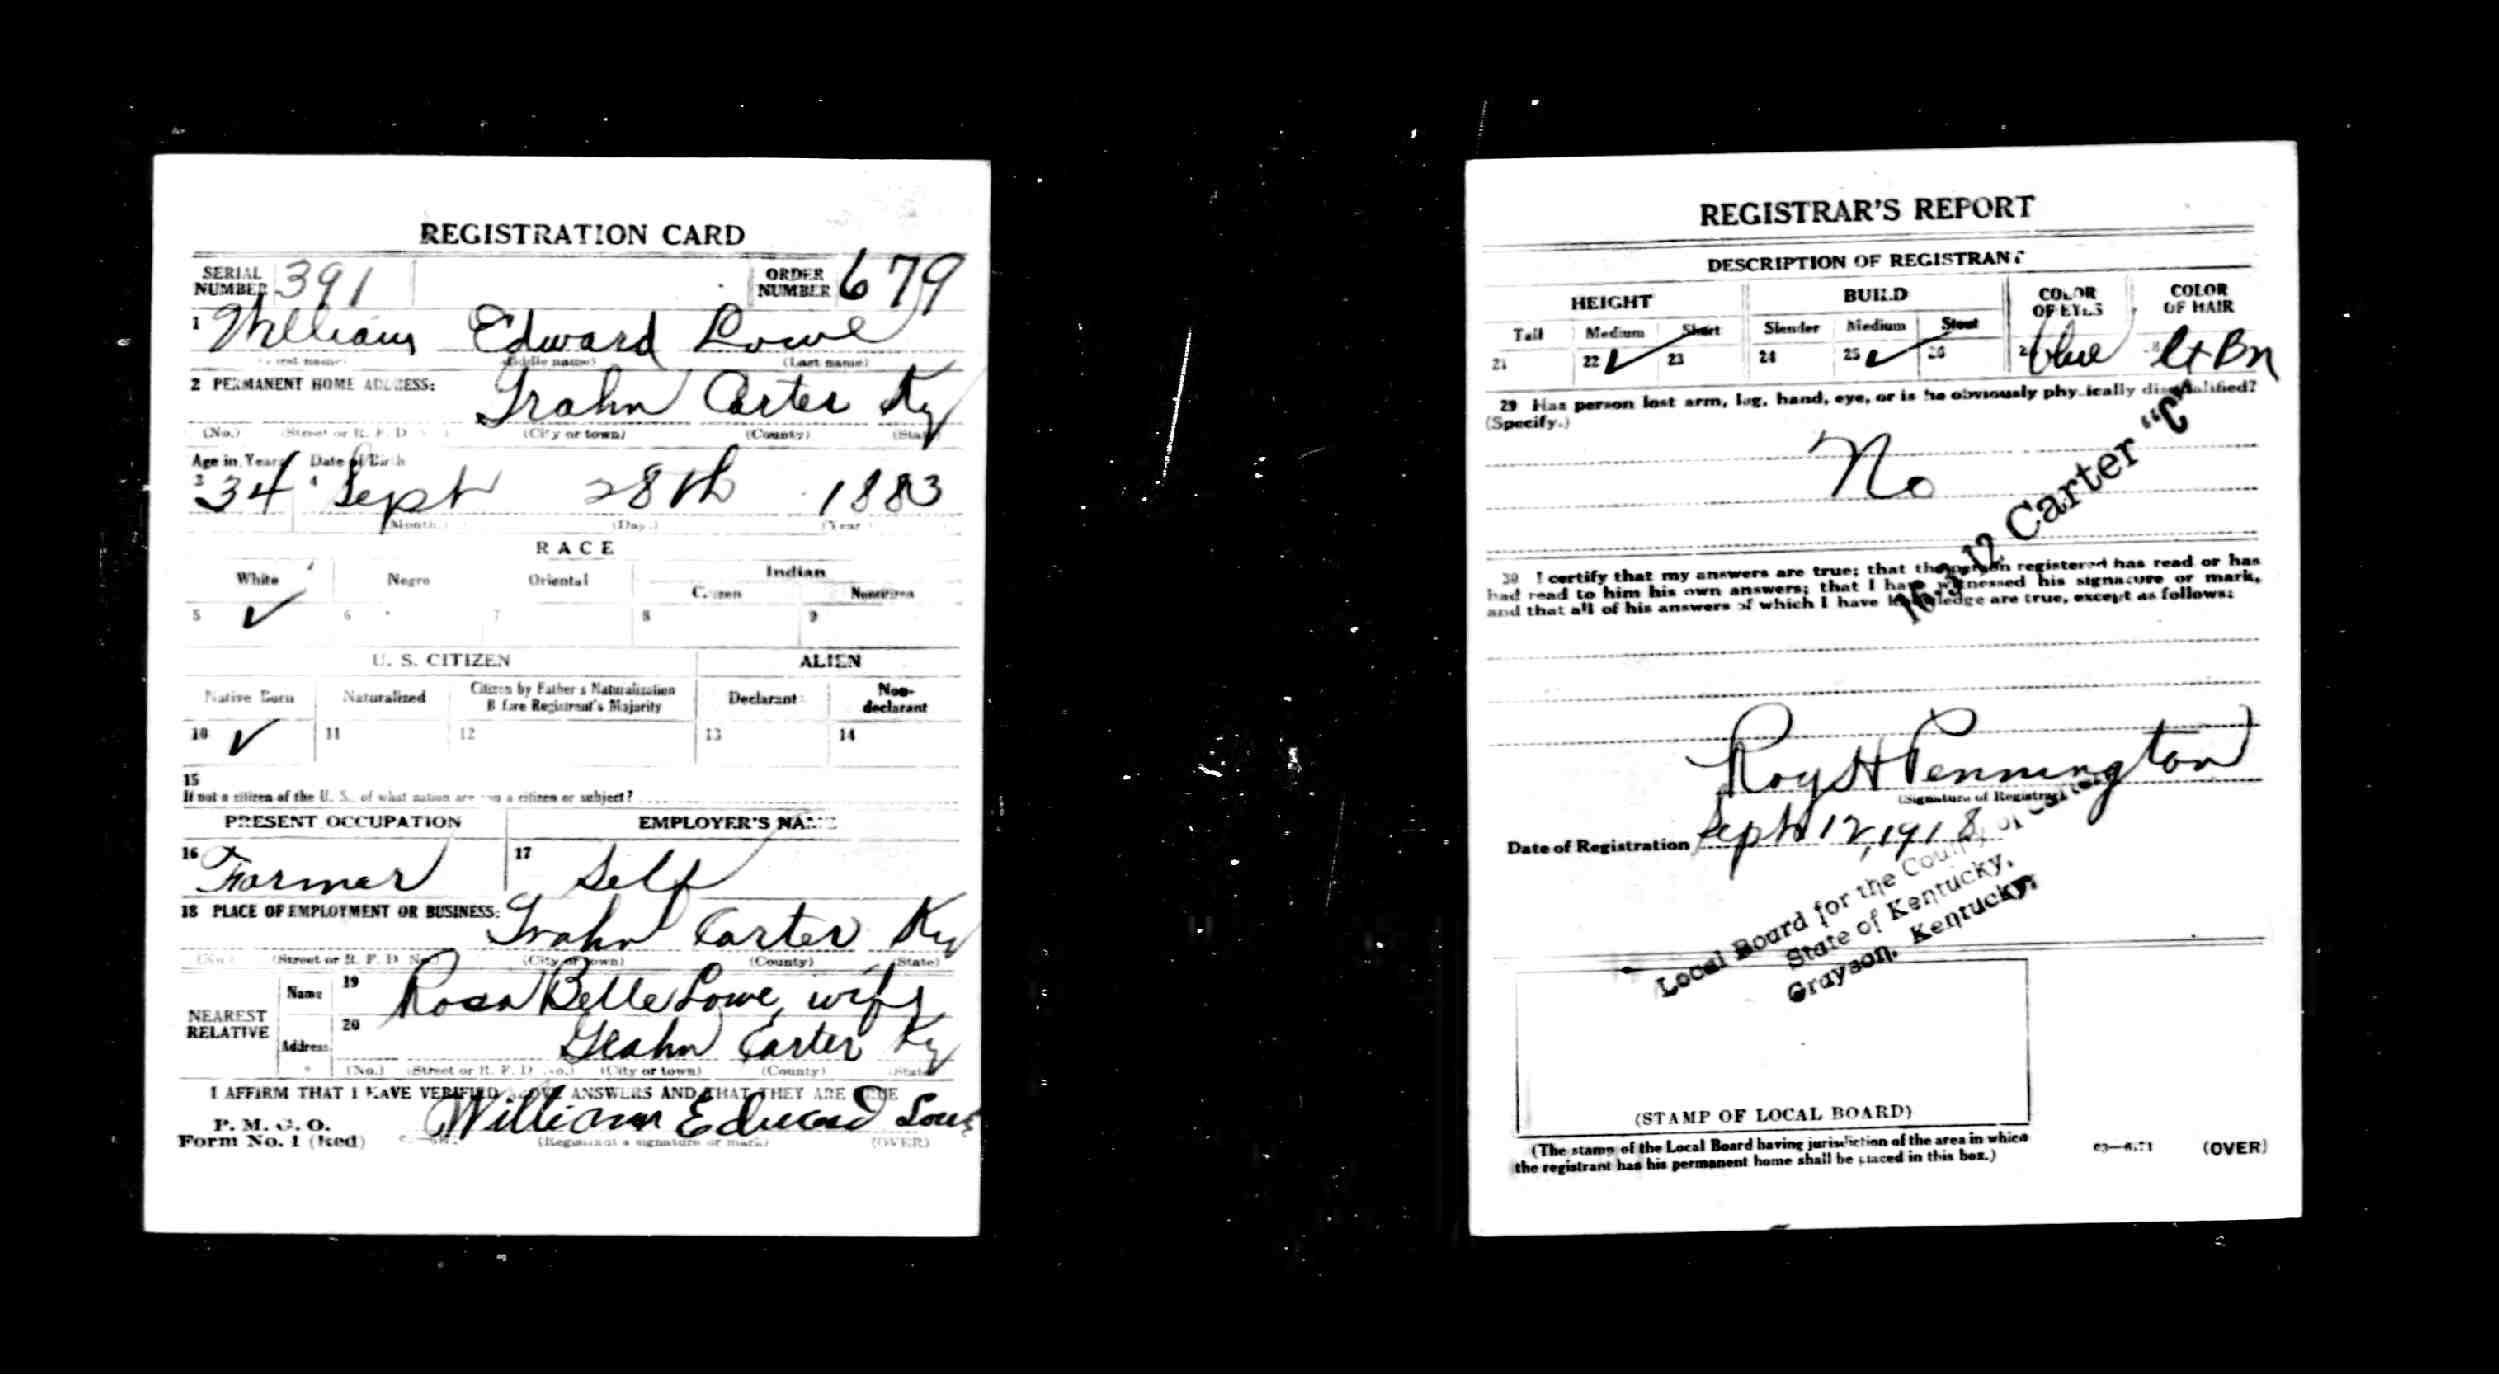 REGISTRATION CARD
SERIAL NUMBER 391 ORDER NUMBER 679
1 William Edward Lowe
(Middle name) (Last name)
2 PERMANENT HOME ADDRESS: Grahn Carter Ky
(No.) (Street or R. F. D. No.) (City or town) (County) (State)
Age in Years Date of Birth
3 34 4 Sept 28th 1883
(Month.) (Day.) (Year.)
RACE
White Negro Oriental Indian
Citizen Noncitizen
5 ✓ 6 7 8 9
U. S. CITIZEN ALIEN
Native Born Naturalized Citizen by Father's Naturalization Before Registrant's Majority Declarant Non-declarant
10 ✓ 11 12 13 14
15
If not a citizen of the U. S., of what nation are you a citizen or subject?
PRESENT OCCUPATION EMPLOYER'S NAME
16 Farmer 17 Self
18 PLACE OF EMPLOYMENT OR BUSINESS: Grahn Carter Ky
(No.) (Street or R. F. D. No.) (City or town) (County) (State)
NEAREST RELATIVE
Name 19 Rosa Belle Lowe, wife
Address 20 Grahn Carter Ky
(No.) (Street or R. F. D. No.) (City or town) (County) (State)
I AFFIRM THAT I HAVE VERIFIED ABOVE ANSWERS AND THAT THEY ARE TRUE
P. M. G. O.
Form No. 1 (Red) William Edward Lowe
(Registrant's signature or mark) (OVER)
REGISTRAR'S REPORT
DESCRIPTION OF REGISTRANT
HEIGHT BUILD COLOR OF EYES COLOR OF HAIR
Tall Medium Short Slender Medium Stout
21 22 ✓ 23 24 25 ✓ 26 27 blue 28 Lt Bn
29 Has person lost arm, leg, hand, eye, or is he obviously physically disqualified?
(Specify.)
No
16-3-12 Carter "C"
30 I certify that my answers are true; that the person registered has read or has
had read to him his own answers; that I have witnessed his signature or mark,
and that all of his answers of which I have knowledge are true, except as follows:
Roy H Pennington
(Signature of Registrar)
Date of Registration Sept 12, 1918
Local Board for the County of Carter
State of Kentucky,
Grayson, Kentucky.
(STAMP OF LOCAL BOARD)
(The stamp of the Local Board having jurisdiction of the area in which
the registrant has his permanent home shall be placed in this box.)
(OVER)